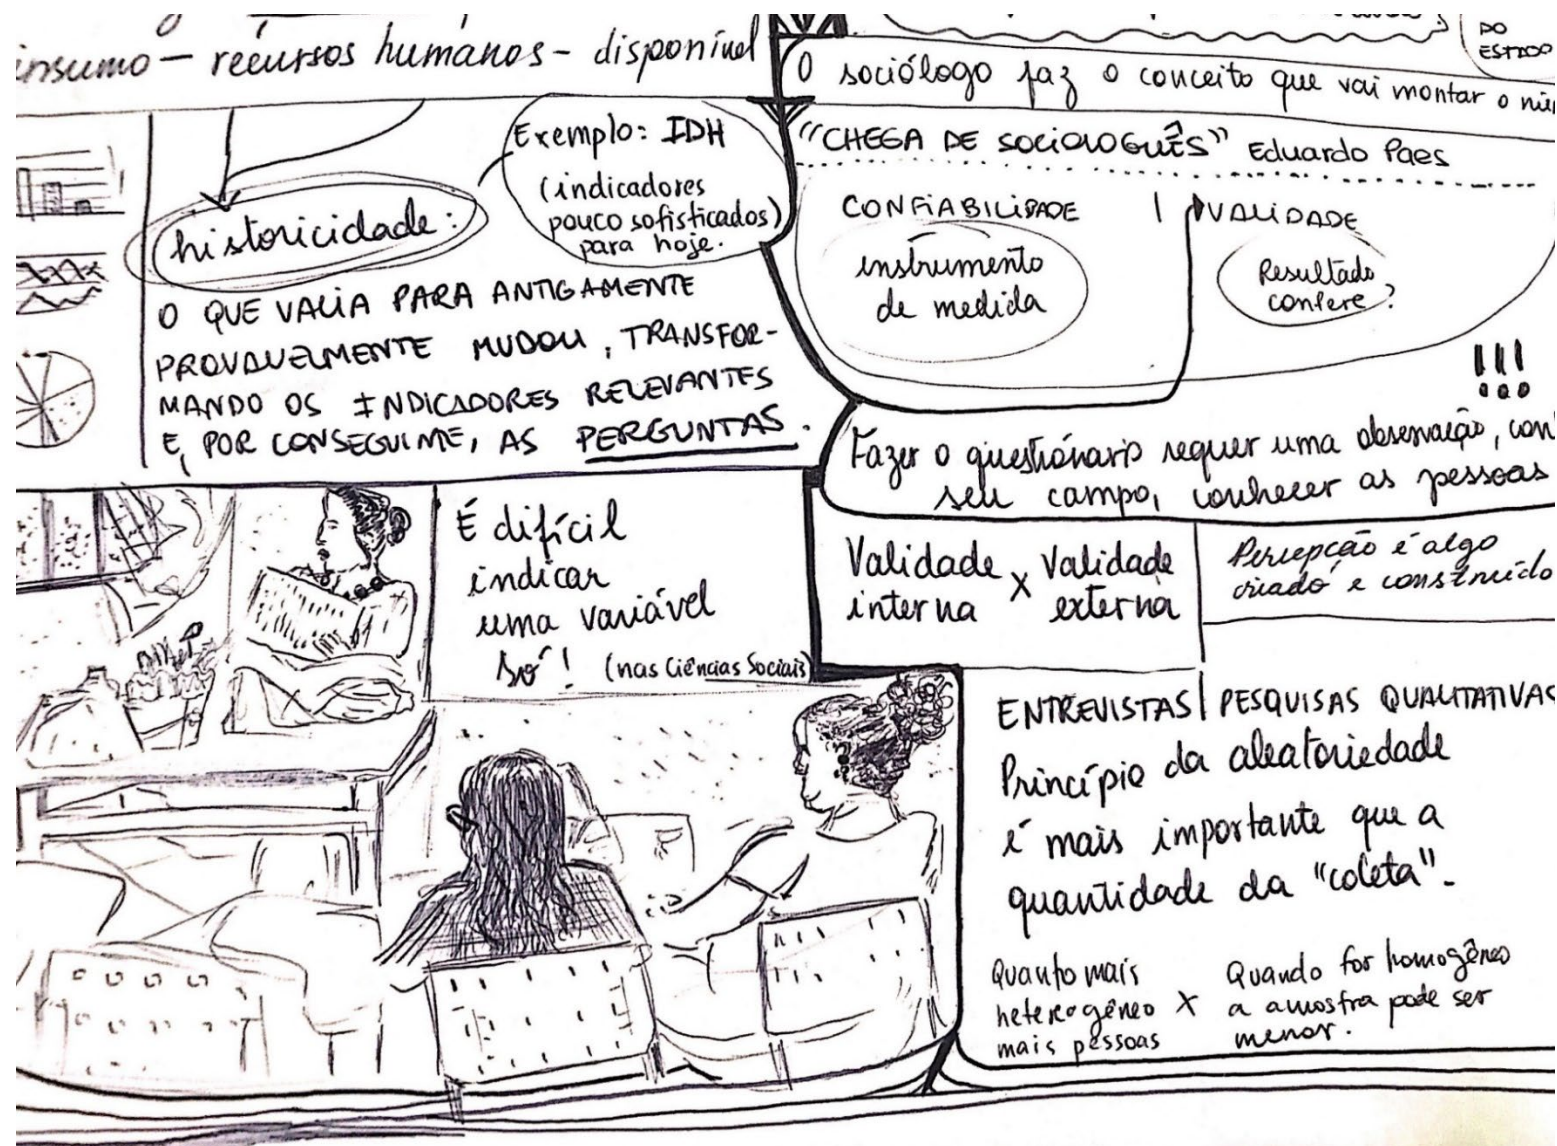 insumo – recursos humanos – disponível
historicidade:
Exemplo: IDH
(indicadores
pouco sofisticados)
para hoje.
O QUE VALIA PARA ANTIGAMENTE
PROVAVELMENTE MUDOU, TRANSFOR-
MANDO OS INDICADORES RELEVANTES
E, POR CONSEGUINTE, AS PERGUNTAS.
É difícil
indicar
uma variável
só! (nas Ciências Sociais)
DO
ESTADO
O sociólogo faz o conceito que vai montar o
"CHEGA DE SOCIOLOGUÊS" Eduardo Paes
CONFIABILIDADE | VALIDADE
instrumento
de medida
Resultado
confere?
!!!
Fazer o questionário requer uma observação,
seu campo, conhecer as pessoas
Validade x Validade
interna externa
Percepção é algo
criado e construído
ENTREVISTAS | PESQUISAS QUALITATIVAS
Princípio da aleatoriedade
é mais importante que a
quantidade da "coleta".
Quanto mais
heterogêneo x
mais pessoas
Quando for homogêneo
a amostra pode ser
menor.